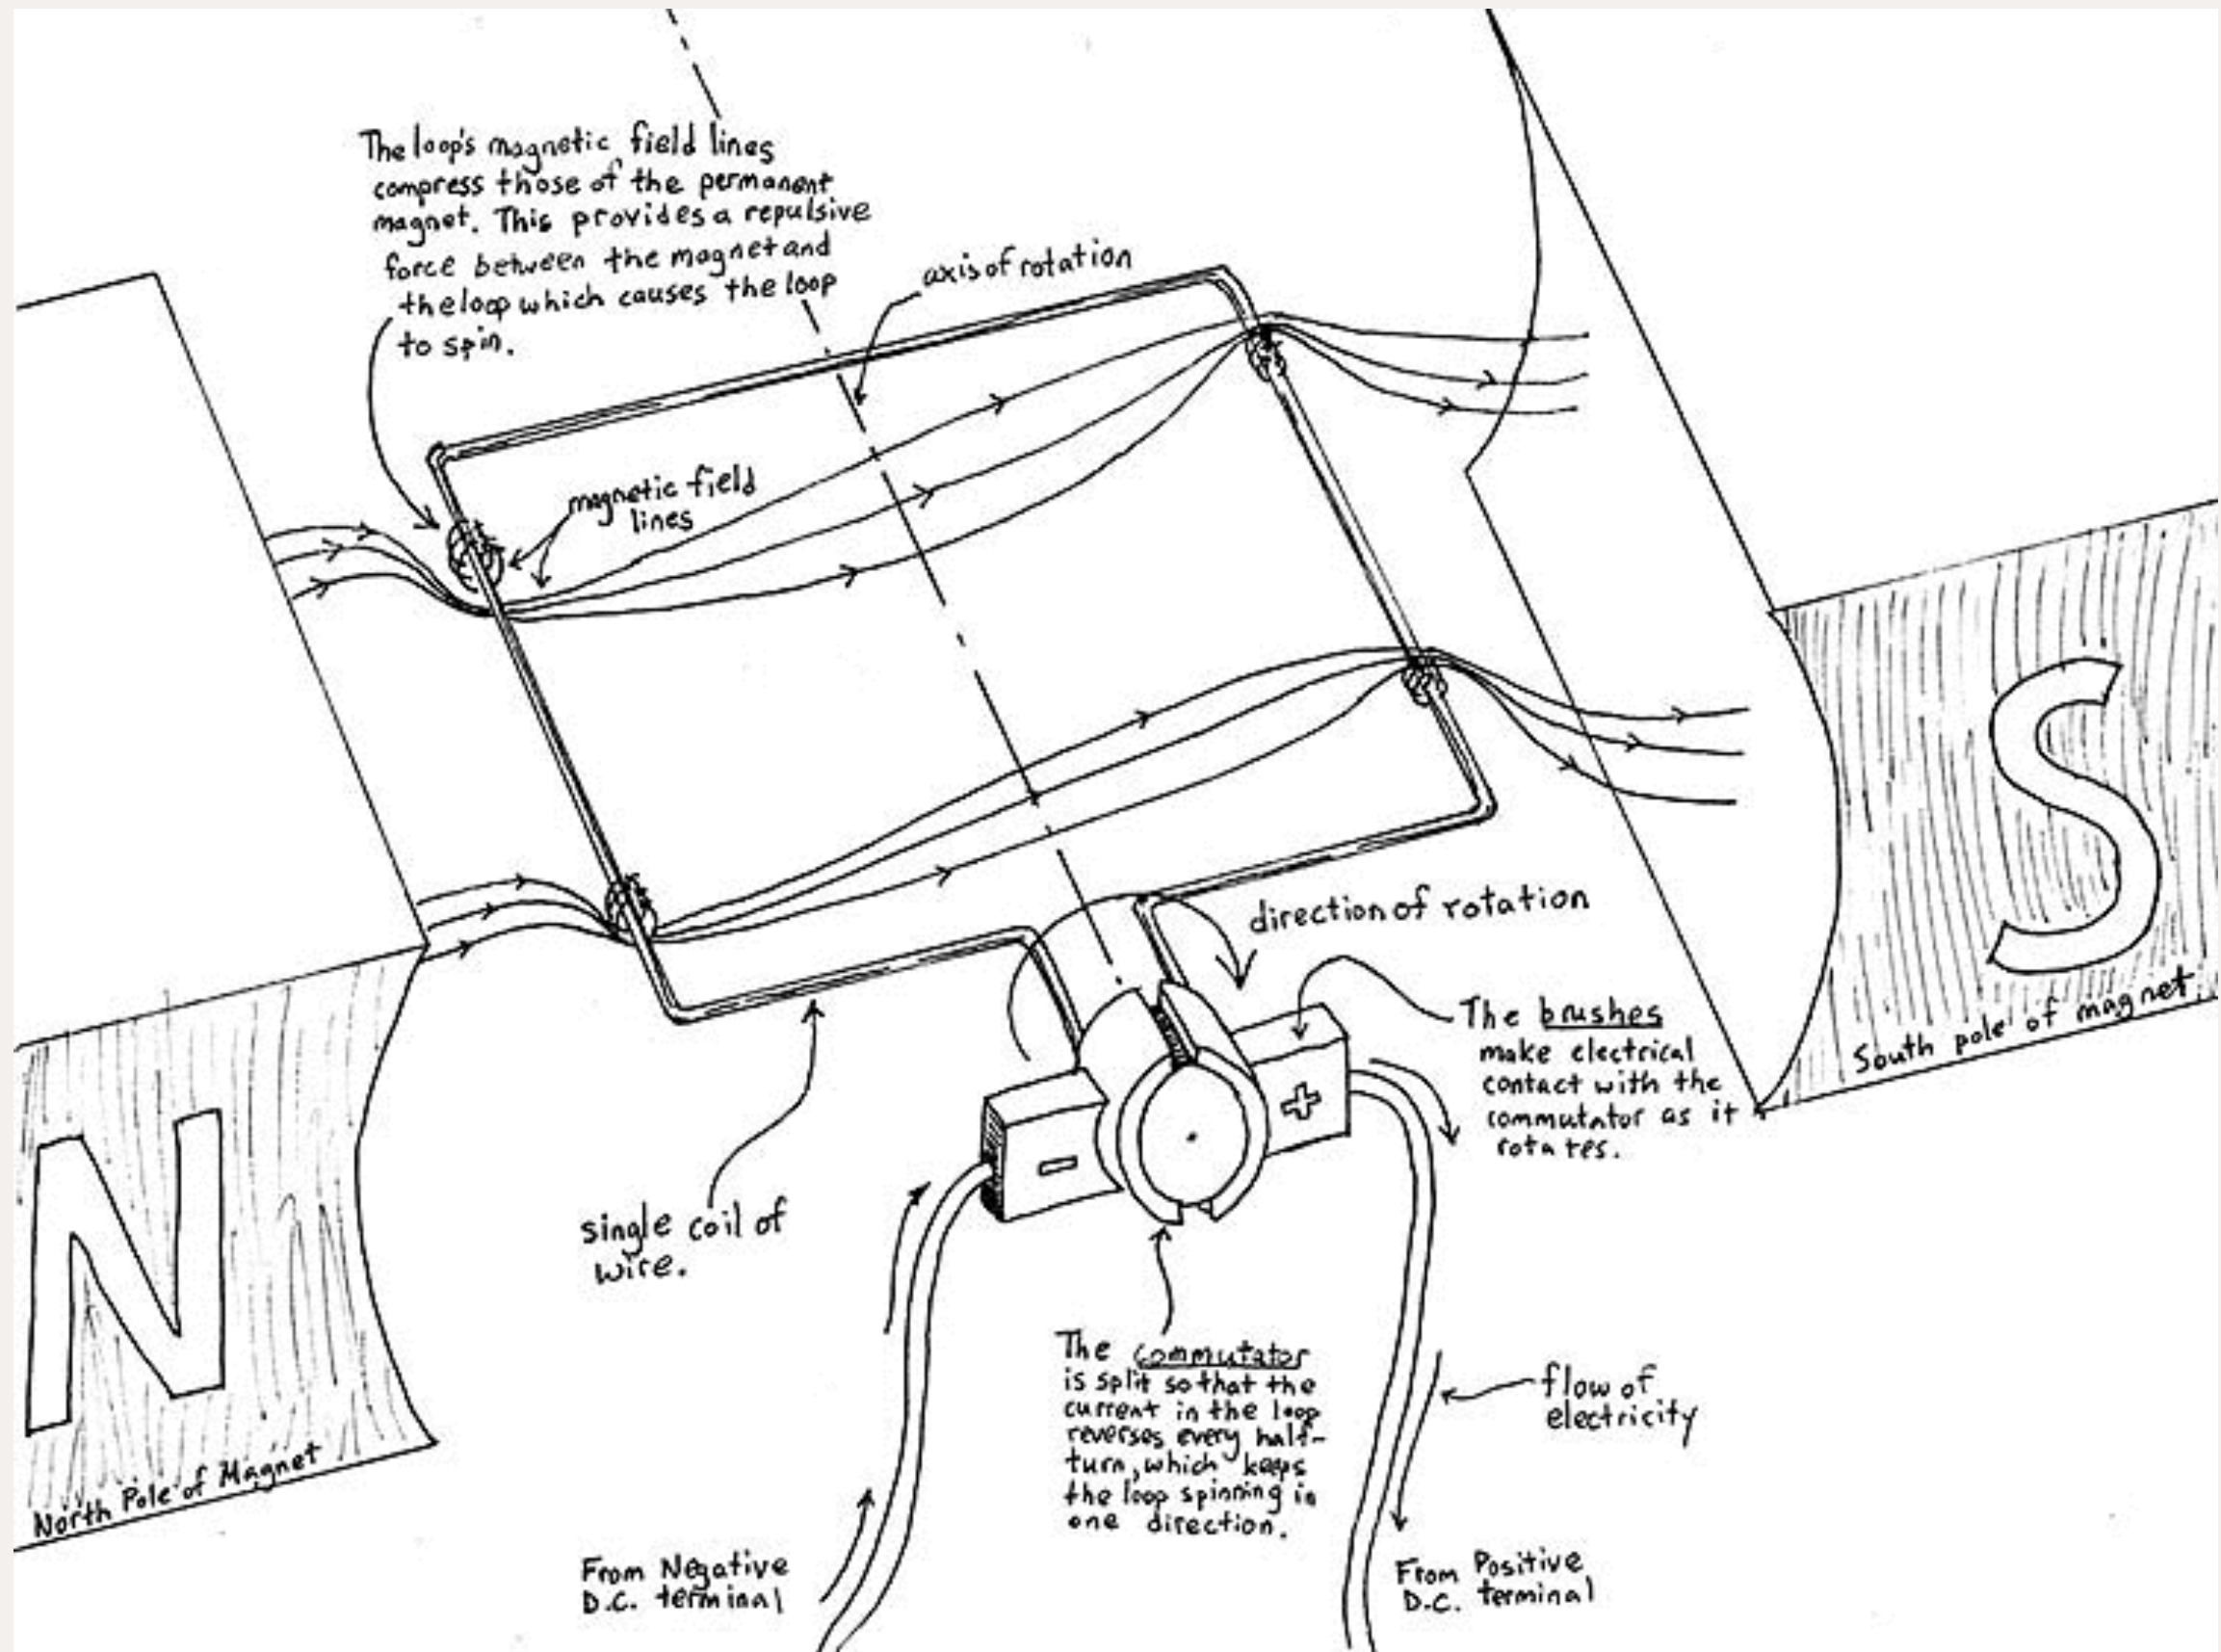 The loop's magnetic field lines
compress those of the permanent
magnet. This provides a repulsive
force between the magnet and
the loop which causes the loop
to spin.
axis of rotation
magnetic field
lines
direction of rotation
The brushes
make electrical
contact with the
commutator as it
rotates.
S
South pole of magnet
N
North Pole of Magnet
-
+
single coil of
wire.
The commutator
is split so that the
current in the loop
reverses every half-
turn, which keeps
the loop spinning in
one direction.
flow of
electricity
From Negative
D.C. terminal
From Positive
D.C. terminal